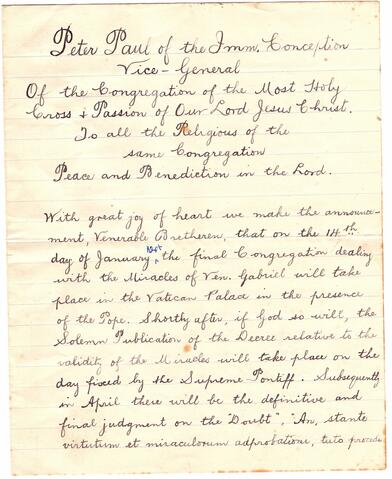 Peter Paul of the Imm. Conception
Vice-General
Of the Congregation of the Most Holy
Cross + Passion of Our Lord Jesus Christ.
To all the Religious of the
same Congregation
Peace and Benediction in the Lord.
With great joy of heart we make the announce-
ment, Venerable Bretheren, that on the 14th
day of January next the final Congregation dealing
with the Miracles of Ven. Gabriel will take
place in the Vatican Palace in the presence
of the Pope. Shortly after, if God so will, the
Solemn Publication of the Decree relative to the
validity of the Miracles will take place on the
day fixed by the Supreme Pontiff. Subsequently
in April there will be the definitive and
final judgment on the "Doubt", "An, stante
virtutum et miraculorum adprobatione, tuto procedi